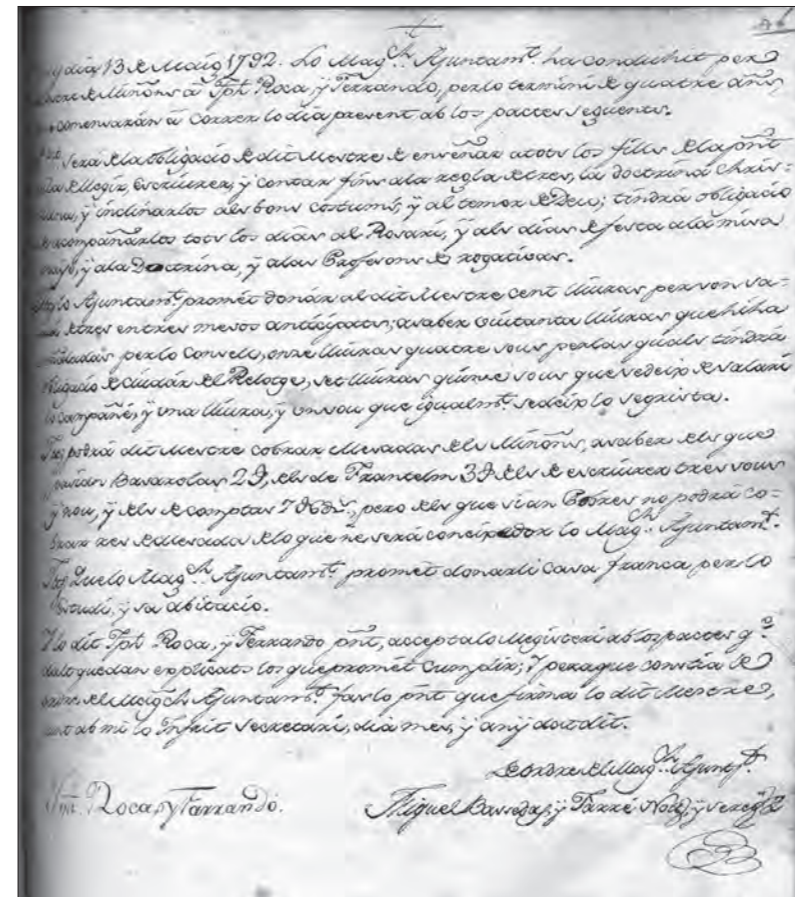 dia 13 de Maig 1792. Lo Mag.ch Ajuntam.t ha conduhit per
Mestre de Miñons â Jph Roca, ÿ Ferrando, perlo termini de quatre añs,
comensarán â correr lo dia present ab los pactes seguents.
Será de la obligació de dit Mestre de enseñar atots los fills de la pñt
Vila de llegir, escriurer, ÿ contar fins ala regla de tres, la doctrina chris-
tiana, ÿ inclinarlos als bons costums, ÿ al temor de Deu; tindrá obligació
de acompañarlos tots los dias al Rosari, ÿ als dias de festa ala missa
major, ÿ ala Doctrina, ÿ alas Professons de rogativas.
lo Ajuntam.t promet donar al dit Mestre cent lliuras, per son sa-
lari de tres en tres mesos antic; asaber vuitanta lliuras que hi ha
señaladas per lo Consell, onse lliuras quatre sous per las quals tindrá
obligació de cuidar del Relotge, set lliuras quinse sous que sedeix de salari
lo campañé, ÿ una lliura, ÿ un sou que igualm.t sedeix lo segrista.
podrá dit Mestre cobrar mesadas dels Miñons, asaber dels que
Beserolas 2 , dels de Francelm 3 dels de escriurer tres sous
ÿ nou, ÿ dels de comptar 7 , pero dels que sian Pobres no podrá co-
brar res de mesada de lo que ne será lo Mag.ch Ajuntam.t
Que lo Mag.ch Ajuntam.t promet donarli casa franca per lo
Estudi, ÿ sa abitació.
Y lo dit Jph Roca, ÿ Ferrando pñt, accepta lo Magisteri ab los pactes q.e
dalo quedan explicats los que promet cumplir; ÿ peraque constia de
orde del Mag.ch Ajuntam.t fas lo pñt que firma lo dit Mestre,
junt ab mi lo Infrit Secretari, dia mes, ÿ any dot dit.
De orde del Mag.ch Ajunt.t
Roca, y Farrando.
Miguel ÿ Farré Not.i, ÿ secr.i